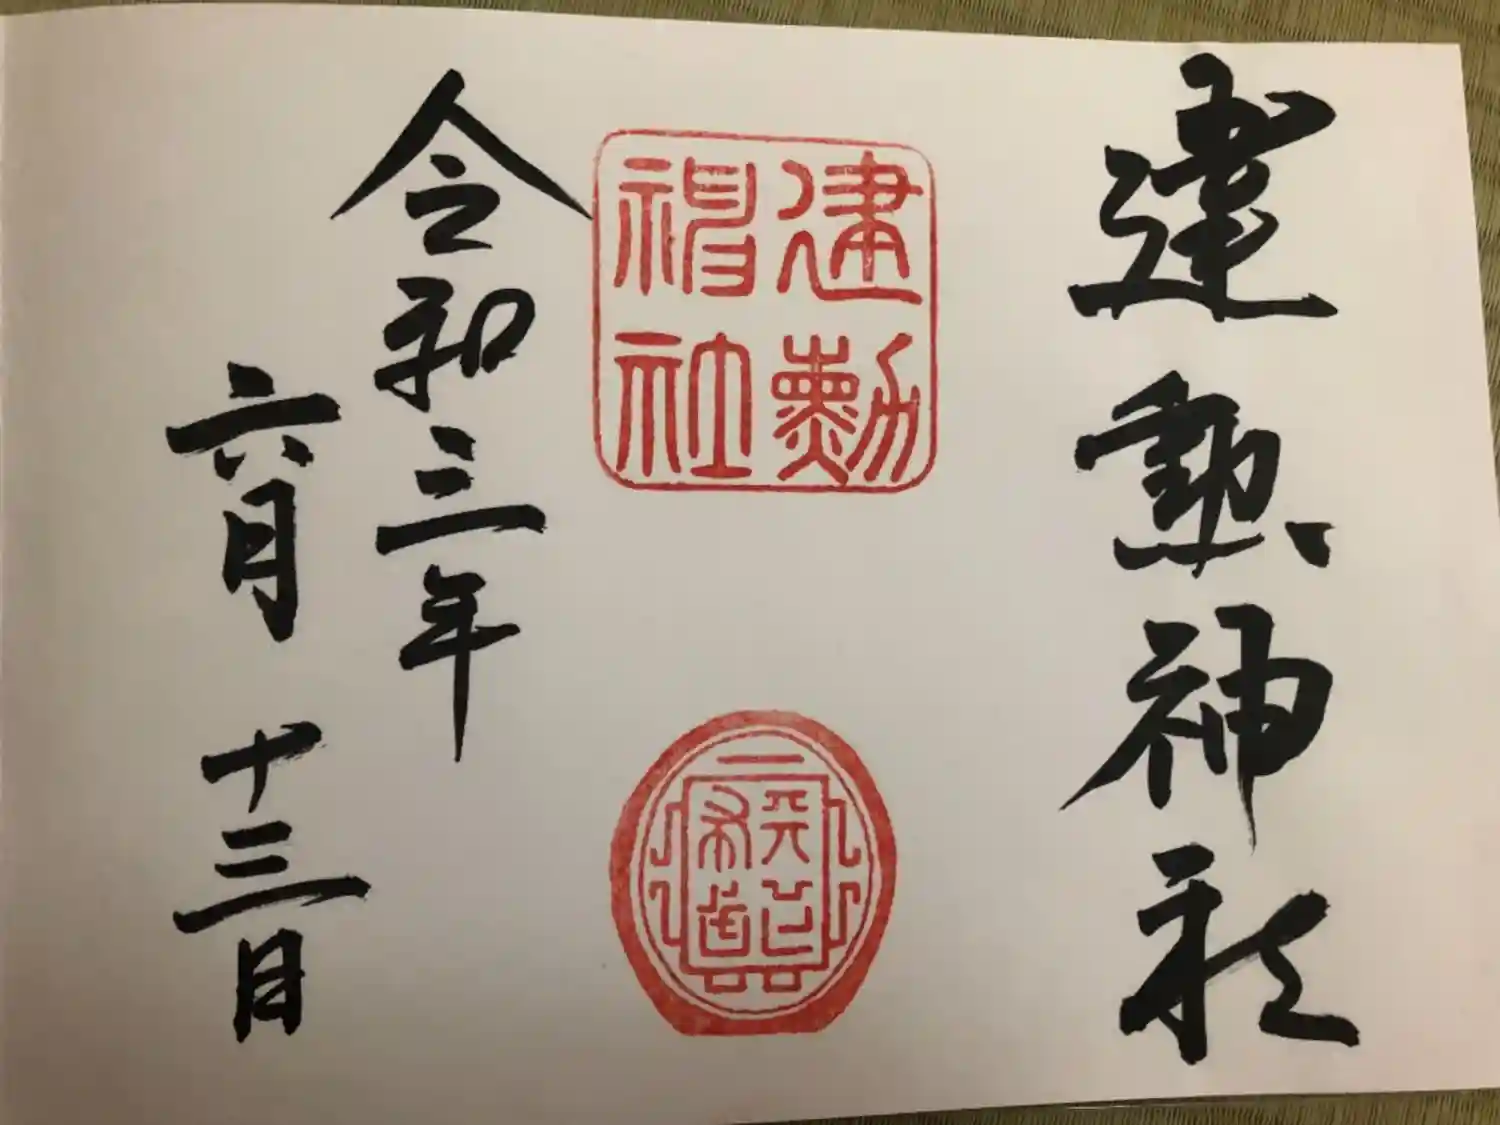 建勲神社
建勲
神社
天下
布武
令和三年
六月十三日